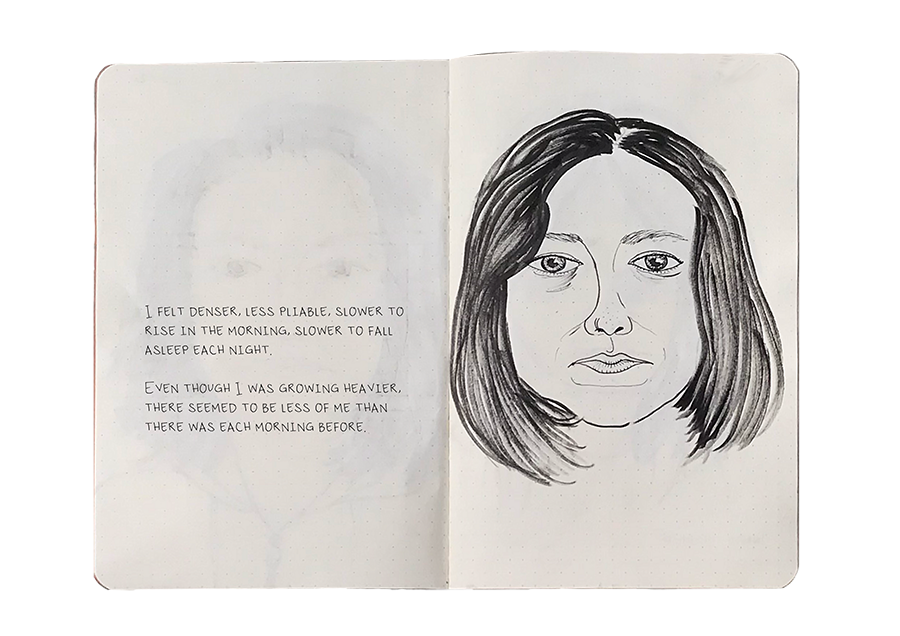 I FELT DENSER, LESS PLIABLE, SLOWER TO
RISE IN THE MORNING, SLOWER TO FALL
ASLEEP EACH NIGHT.
EVEN THOUGH I WAS GROWING HEAVIER,
THERE SEEMED TO BE LESS OF ME THAN
THERE WAS EACH MORNING BEFORE.